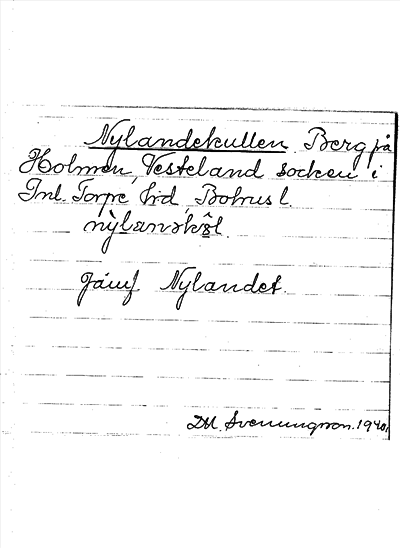 Nylandekullen Berg på
Holmen, Vesteland socken i
Inl. Torpe hrd, Bohus l.
nỳlanəkəl.
Jämf Nylandet.
DM. Svenungsson. 1940.